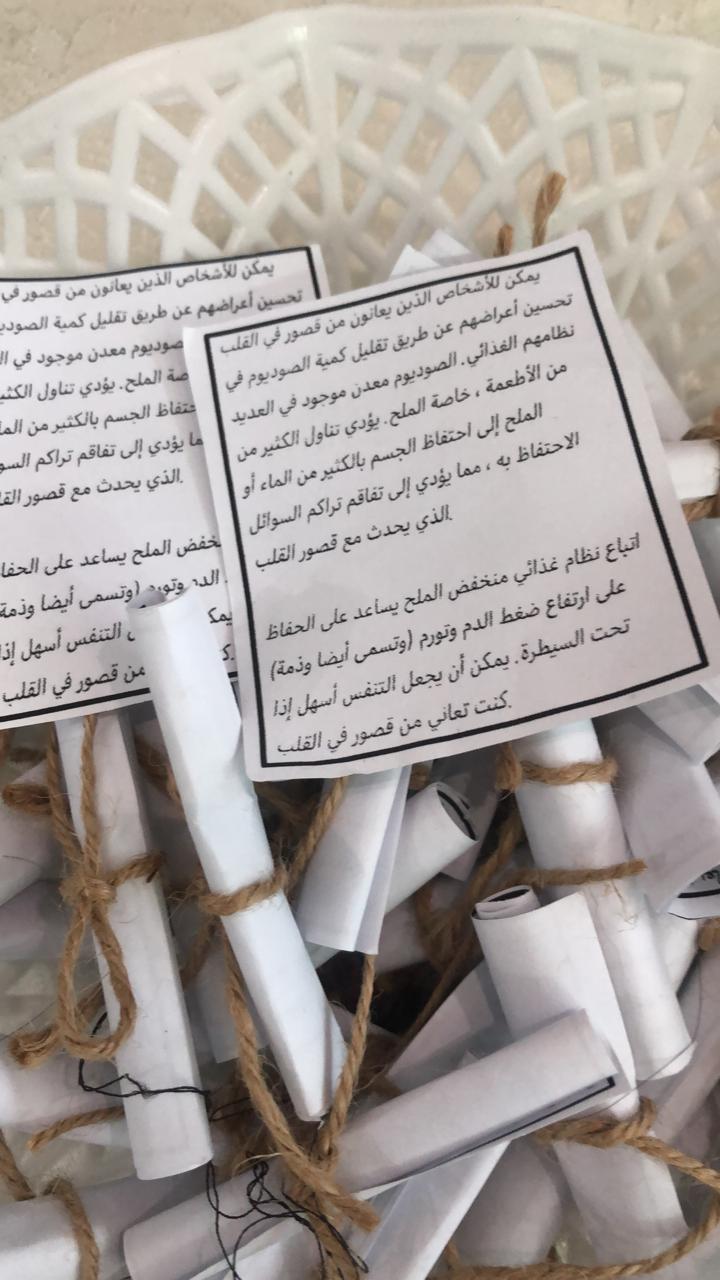 يمكن للأشخاص الذين يعانون من قصور في القلب
تحسين أعراضهم عن طريق تقليل كمية الصوديوم في
نظامهم الغذائي. الصوديوم معدن موجود في العديد
من الأطعمة ، خاصة الملح. يؤدي تناول الكثير من
الملح إلى احتفاظ الجسم بالكثير من الماء أو
الاحتفاظ به ، مما يؤدي إلى تفاقم تراكم السوائل
.الذي يحدث مع قصور القلب
اتباع نظام غذائي منخفض الملح يساعد على الحفاظ
على ارتفاع ضغط الدم وتورم (وتسمى أيضا وذمة)
تحت السيطرة. يمكن أن يجعل التنفس أسهل إذا
.كنت تعاني من قصور في القلب
يمكن للأشخاص الذين يعانون من قصور في
تحسين أعراضهم عن طريق تقليل كمية
معدن موجود في
الملح. يؤدي تناول
احتفاظ الجسم بالكثير من
يؤدي إلى تفاقم تراكم
.الذي يحدث مع قصور
الملح يساعد على
الدم وتورم (وتسمى أيضا وذمة
التنفس أسهل إذا
من قصور في القلب